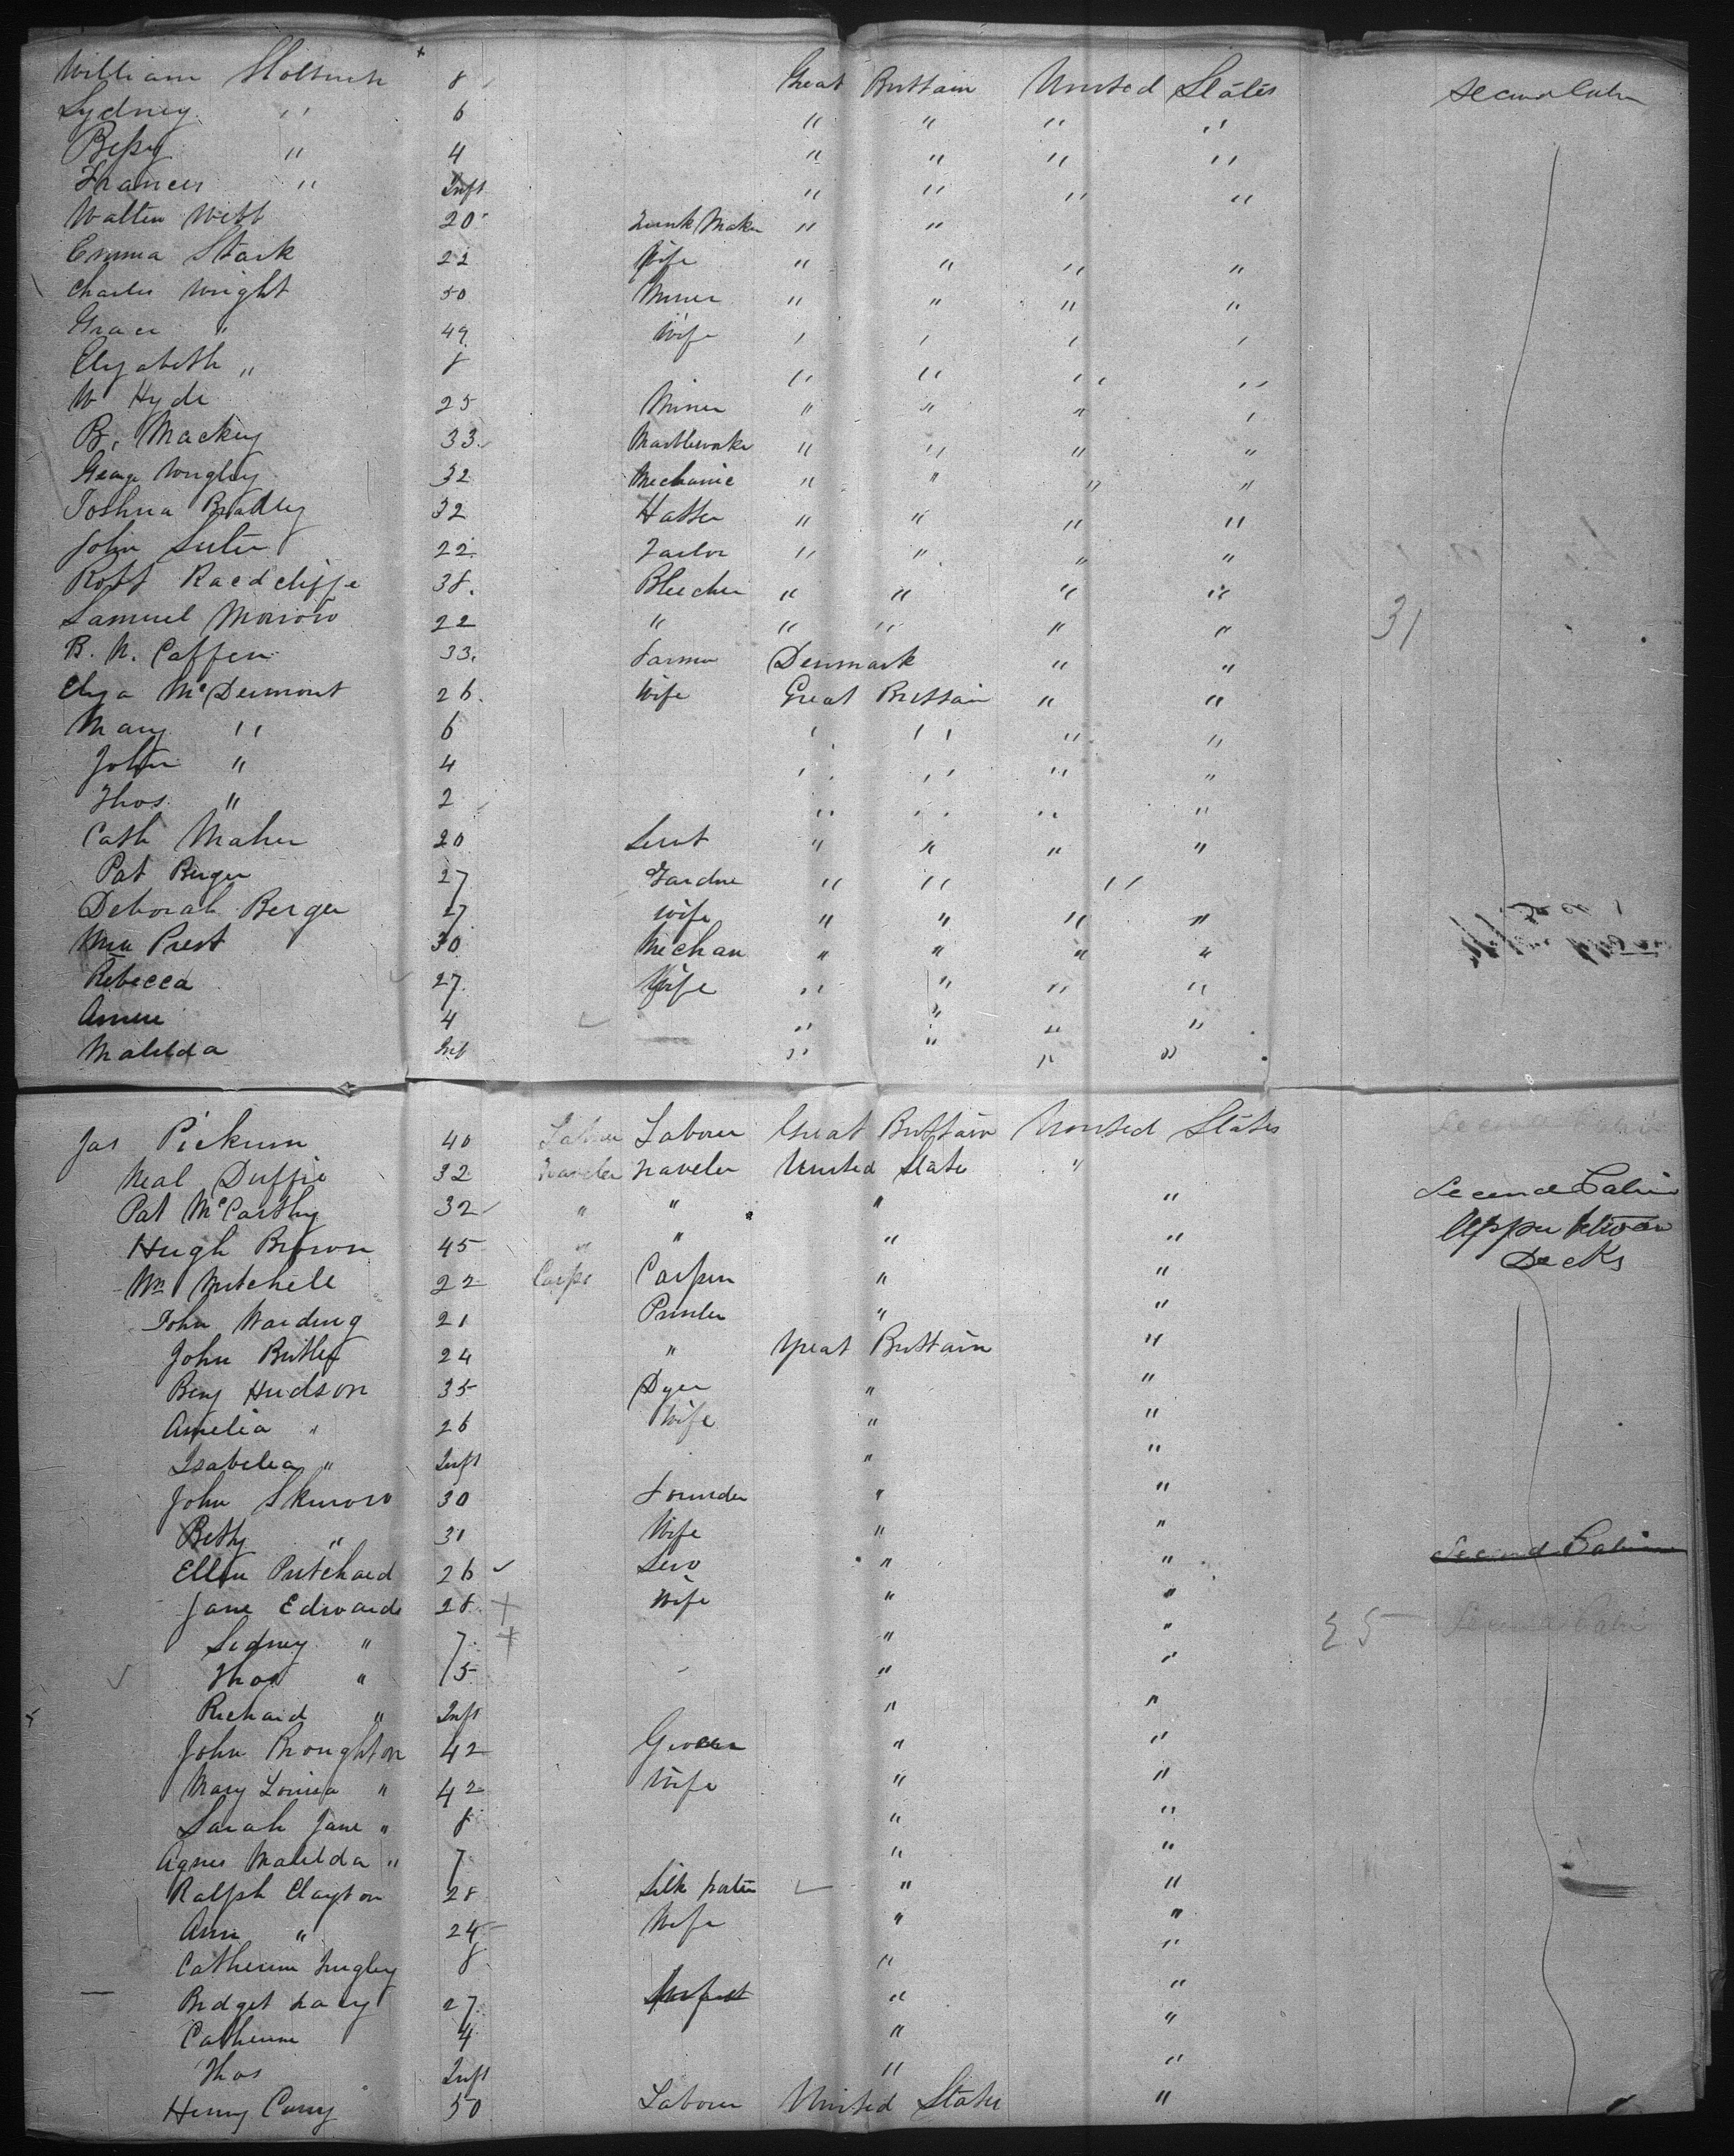 William Holbrich 8 Great Brittain United States Second Cabin
Sydney " 6 " " " "
Bessy " 4 " " " "
Frances " Inft " " " "
Walter Webb 20 Trunk Maker " "
Emma Stark 22 Wife " " " "
Charles Wright 50 Miner " " " "
Grace " 49 Wife " " " "
Elizabeth " 8 " " " "
W Hyde 25 Miner " " " "
B. Mackey 33 " " " "
George Wrigley 32 Mechanic " " " "
Joshua Bradley 32 Hatter " " " "
John Suter 22 Tailor " " " "
Robt Raedcliffe 38. Bleecher " " " "
Samuel Morrow 22 " " " " "
31
R. N. Caffen 33. Farmer Denmark " "
Eliza McDermont 26. Wife Great Brittain " "
Mary " 6 " " " "
John " 4 " " " "
Thos. " 2 " " " "
Cath Maher 20 Servt " " " "
Pat Berger 27 Gardne " " "
Deborah Berger 27 wife " " " "
Wm Prest 30 Mechan " " " "
Rebecca 27 Wife " " " "
Annie 4 " " " "
Matilda Inf " " " "
Jas Pickum 40 Labour Labour Great Brittain United States Second Cabin
Neal Duffie 32 traveler traveler United State "
Second Cabin
Pat McCarthy 32 " " " "
Upper between
Hugh Brown 45 " " " "
Decks
Wm Mitchell 22 Carpr Carpen " "
John Warding 21 Printer " "
John Butler 24 " Great Brittain "
Benj Hudson 35 Dyer " "
Amelia " 26 Wife " "
Isabella " Inft " "
John Skurow 30 Founder " "
Betty " 31 Wife " "
Second Cabin
Ellen Pritchard 26 Serv " "
Jane Edwards 28 Wife " "
Sidney " 7 " "
25 Second Cabin
Thos " 5 " "
Richard " Inft " "
John Broughton 42 Grocer " "
Mary Louisa " 42 Wife " "
Sarah Jane " 8 " "
Agnes Matilda " 7 " "
Ralph Clayton 28 Silk " "
Ann " 24 Wife " "
Catherine 8 " "
Bridget 27 " "
Catherine 4 " "
Thos Inft " "
Henry Curry 50 Labour United States "